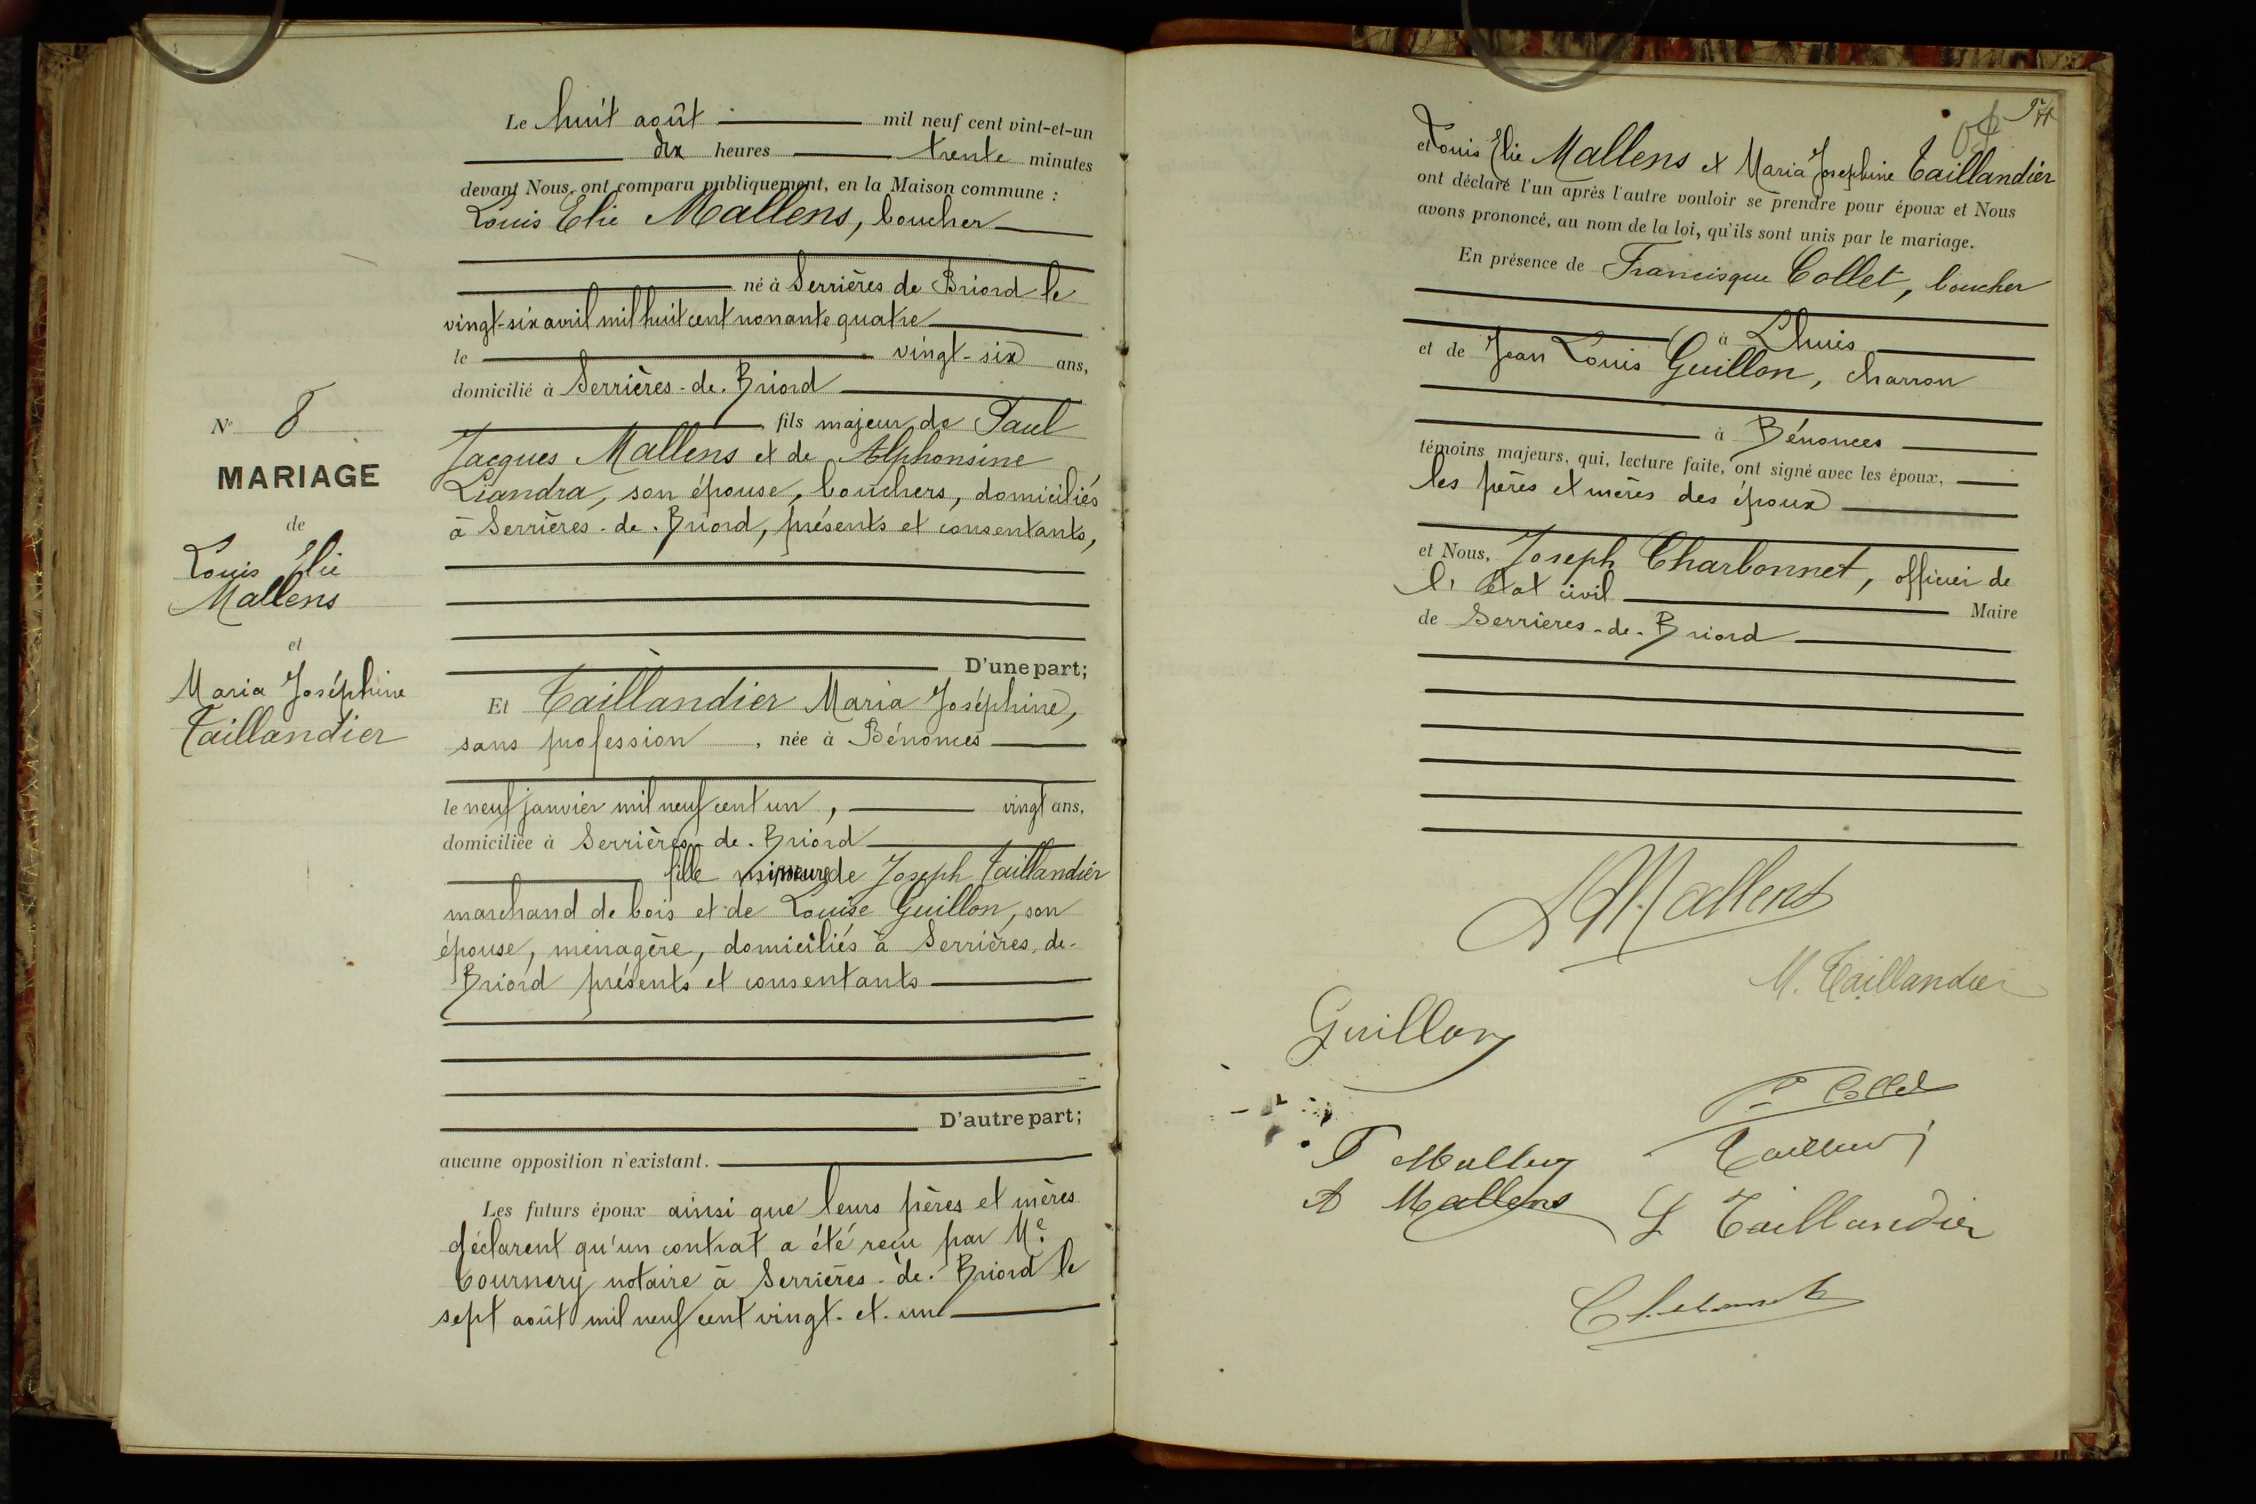 N° 8
MARIAGE
de
Louis Élie
Mallens
et
Maria Joséphine
Taillandier
Le huit août mil neuf cent vint-et-un
dix heures trente minutes
devant Nous, ont comparu publiquement, en la Maison commune :
Louis Elie Mallens, boucher
né à Serrières de Briord le
vingt-six avril mil huit cent nonante quatre
le vingt-six ans,
domicilié à Serrières-de-Briord
fils majeur de Paul
Jacques Mallens et de Alphonsine
Liandra, son épouse, bouchers, domiciliés
à Serrières-de-Briord, présents et consentants,
D'une part;
Et Taillandier Maria Joséphine,
sans profession, née à Bénonces
le neuf janvier mil neuf cent un, vingt ans,
domiciliée à Serrières-de-Briord
fille mineure de Joseph Taillandier
marchand de bois et de Louise Guillon, son
épouse, ménagère, domiciliés à Serrières-de-
Briord présents et consentants
D'autre part;
aucune opposition n'existant.
Les futurs époux ainsi que leurs pères et mères
déclarent qu'un contrat a été reçu par Me
Tournery notaire à Serrières-de-Briord le
sept août mil neuf cent vingt-et-un
et Louis Elie Mallens et Maria Josephine Taillandier
ont déclaré l'un après l'autre vouloir se prendre pour époux et Nous
avons prononcé, au nom de la loi, qu'ils sont unis par le mariage.
En présence de Francisque Collet, boucher
à Lhuis
et de Jean Louis Guillon, charron
à Bénonces
témoins majeurs, qui, lecture faite, ont signé avec les époux,
les pères et mères des époux
et Nous, Joseph Charbonnet, officier de
l'État civil Maire
de Serrières-de-Briord
L Mallens
M. Taillandier
Guillon
F Collet
A Mallens
L Taillandier